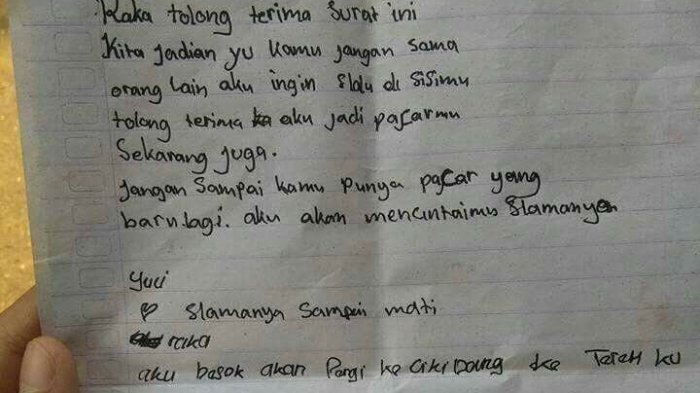 Raka tolong terima surat ini
Kita Jadian yu kamu jangan sama
orang lain aku ingin Slalu di Sisimu
tolong terima aku jadi pacarmu
Sekarang juga.
Jangan Sampai kamu punya pacar yang
baru.lagi. aku akan mencintaimu Slamanya
Yuci
♥ Slamanya Sampai mati
raka
aku besok akan Pargi ke cikidang ke Teteh ku